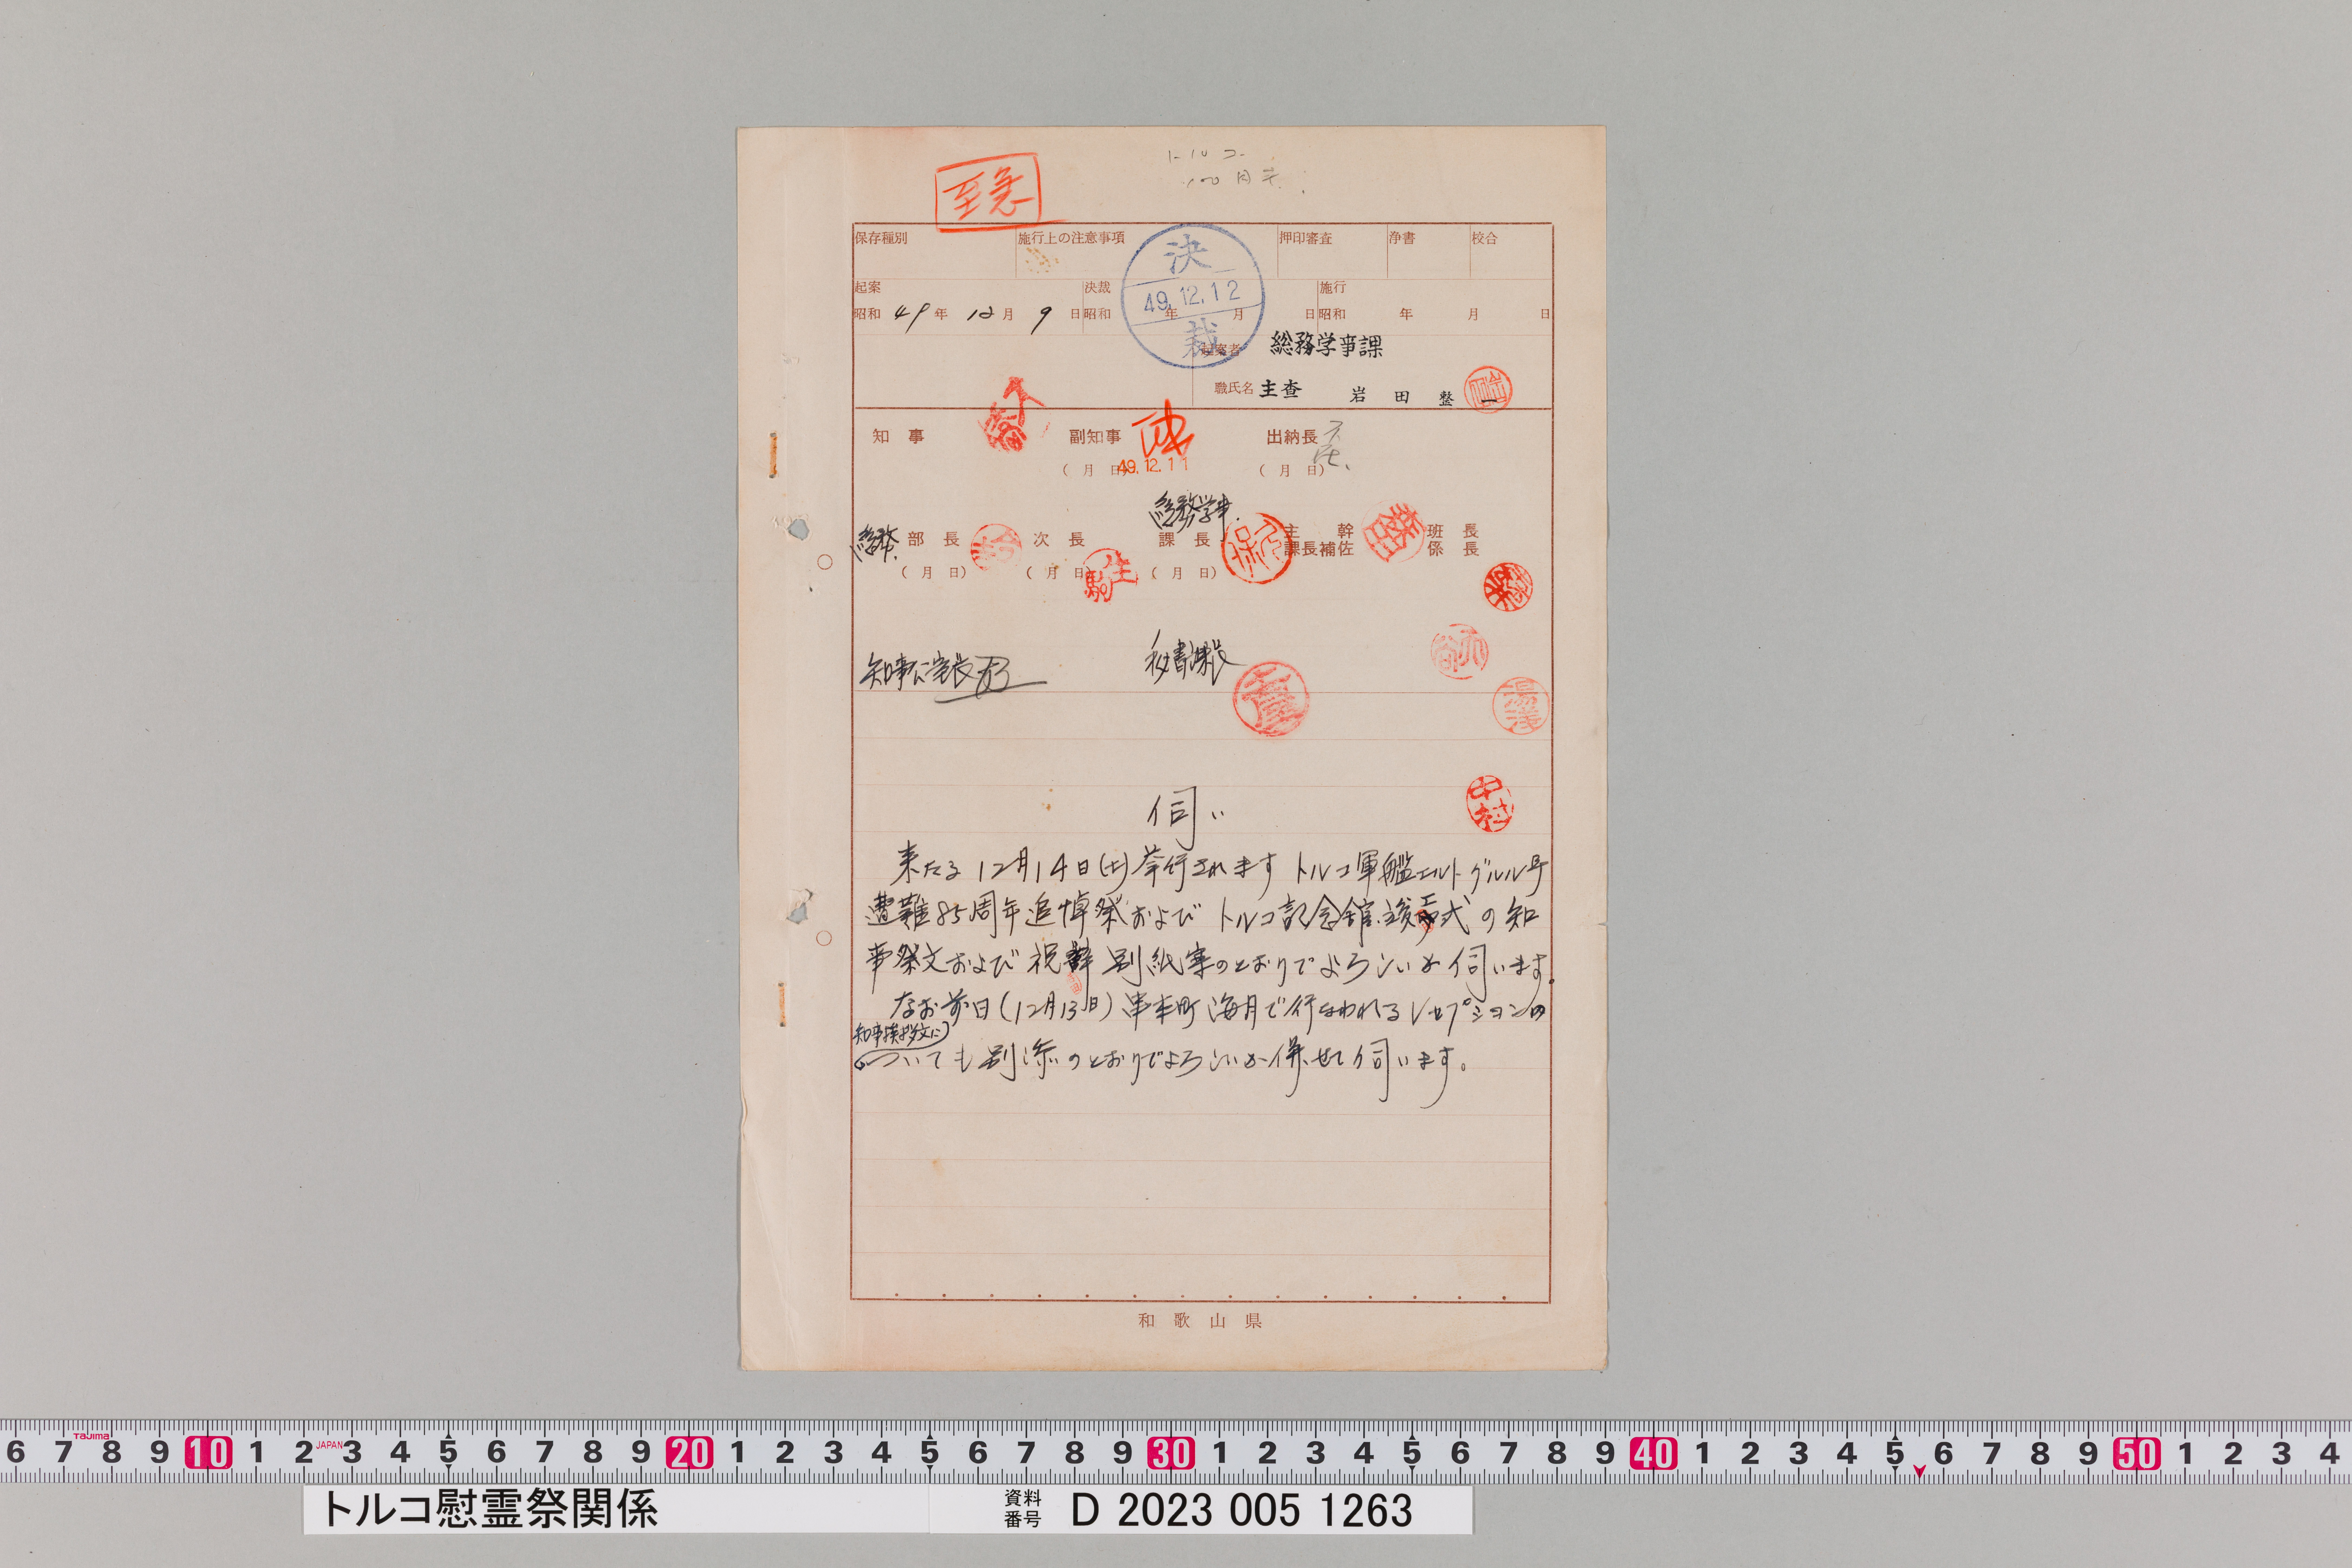 至急
トルコ
保存種別 施行上の注意事項 押印審査 浄書 校合
起案 決裁 施行
昭和 49年 12月 9日 昭和 年 月 日 昭和 年 月 日
決 49.12.12 裁
起案者 総務学事課
職氏名 主査 岩田 整一
知事 副知事 出納長
(月 日) 49.12.11 (月 日)
総務学事
総務 部長 次長 課長 主幹 班長
課長補佐 係長
(月 日) (月 日) (月 日)
生駒
知事公室長 秘書課長
湯浅
中村
伺い
来たる12月14日(土)挙行されますトルコ軍艦エルトグルル号
遭難85周年追悼祭およびトルコ記念館竣工式の知
事祭文および祝辞別紙案のとおりでよろしいか伺います。
なお前日(12月13日)串本町海月で行なわれるレセプションの
知事挨拶文に
ついても別添のとおりでよろしいか併せて伺います。
和歌山県
6 7 8 9 10 1 2 3 4 5 6 7 8 9 20 1 2 3 4 5 6 7 8 9 30 1 2 3 4 5 6 7 8 9 40 1 2 3 4 5 6 7 8 9 50 1 2 3 4
Tajima JAPAN
トルコ慰霊祭関係 資料番号 D 2023 005 1263